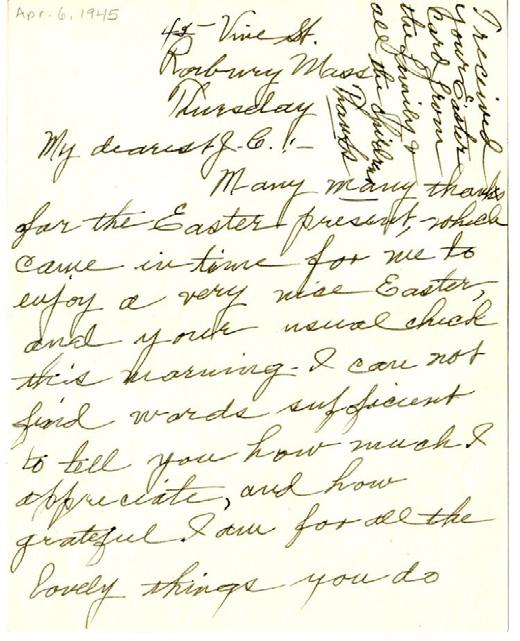 Apr. 6, 1945
45 Vine St.
Roxbury Mass
Thursday
My dearest J. C. :-
Many many thanks
for the Easter present, which
came in time for me to
enjoy a very nice Easter,
and your usual check
this morning - I can not
find words sufficient
to tell you how much I
appreciate, and how
grateful I am for all the
lovely things you do
I received
your Easter
card from
the family &
all the
Thanks